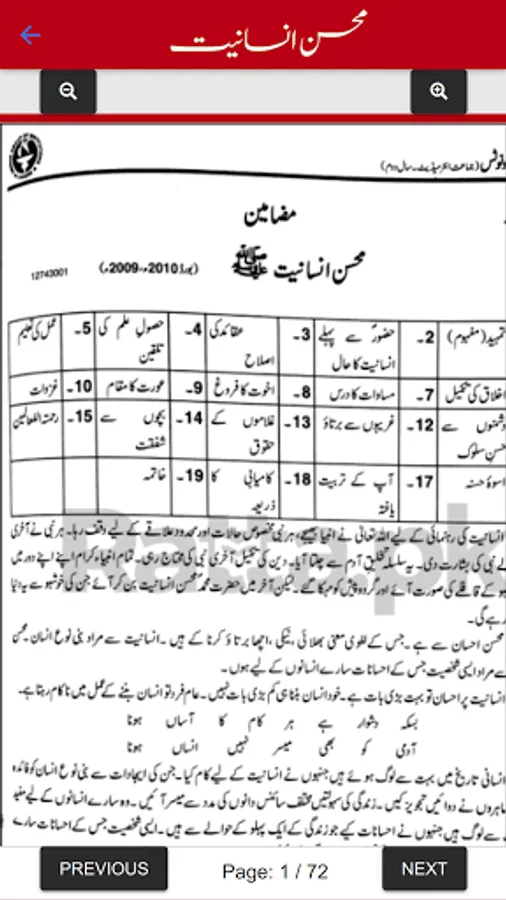 محسن انسانیت
ونوٹس (جماعت انٹرمیڈیٹ۔ سال دوم)
مضامین
محسن انسانیت ﷺ (بورڈ 2010ء، 2009ء) 12743001
تمہید (مفہوم) 2۔ حضورؐ سے پہلے انسانیت کا حال 3۔ عقائد کی اصلاح 4۔ حصولِ علم کی تلقین 5۔ عمل کی تعلیم
اخلاق کی تکمیل 7۔ مساوات کا درس 8۔ اخوت کا فروغ 9۔ عورت کا مقام 10۔ غزوات
دشمنوں سے حسن سلوک 12۔ غریبوں سے برتاؤ 13۔ غلاموں کے حقوق 14۔ بچوں سے شفقت 15۔ رحمۃ اللعالمین
اسوۂ حسنہ 17۔ آپ کے تربیت یافتہ 18۔ کامیابی کا ذریعہ 19۔ خاتمہ
انسانیت کی رہنمائی کے لیے اللہ تعالیٰ نے انبیا بھیجے، ہر نبی مخصوص حالات اور محدود علاقے کے لیے وقف رہا۔ ہر نبی نے آخری
نبی کی بشارت دی۔ یہ سلسلہ تخلیق آدم سے چلتا آیا۔ دین کی تکمیل آخری نبی کی محتاج رہی۔ تمام انبیا کرام اپنے اپنے دور میں
کے قافلے کی صورت آئے اور گردوپیش کو مہکا گئے۔ لیکن آخر میں حضرت محمدؐ محسن انسانیت بن کر آئے جن کی خوشبو سے یہ دنیا
رہے گی۔
محسن احسان سے ہے۔ جس کے لغوی معنی بھلائی، نیکی، اچھا برتاؤ کرنا کے ہیں۔ انسانیت سے مراد بنی نوع انسان۔ محسن
سے مراد ایسی شخصیت جس کے احسانات سارے انسانوں کے لیے ہوں۔
انسانیت پر احسان تو بہت بڑی بات ہے۔ خود انسان بننا ہی کم بڑی بات نہیں۔ عام فرد تو انسان بننے کے عمل میں ناکام رہتا ہے۔
بسکہ دشوار ہے ہر کام کا آساں ہونا
آدمی کو بھی میسر نہیں انساں ہونا
انسانی تاریخ میں بہت سے لوگ ہوئے ہیں جنہوں نے انسانیت کے لیے کام کیا۔ جن کی ایجادات سے بنی نوع انسان کو فائدہ
ماہروں نے دوائیں تجویز کیں۔ زندگی کی سہولتیں مختلف سائنس دانوں کی مدد سے میسر آئیں۔ وہ سارے انسانوں کے لیے مفید
سے لوگ ہیں جنہوں نے احسانات کیے جو زندگی کے ایک پہلو کے حوالے سے ہیں۔ ایسی شخصیت جس کے احسانات سارے
PREVIOUS
Page: 1 / 72
NEXT